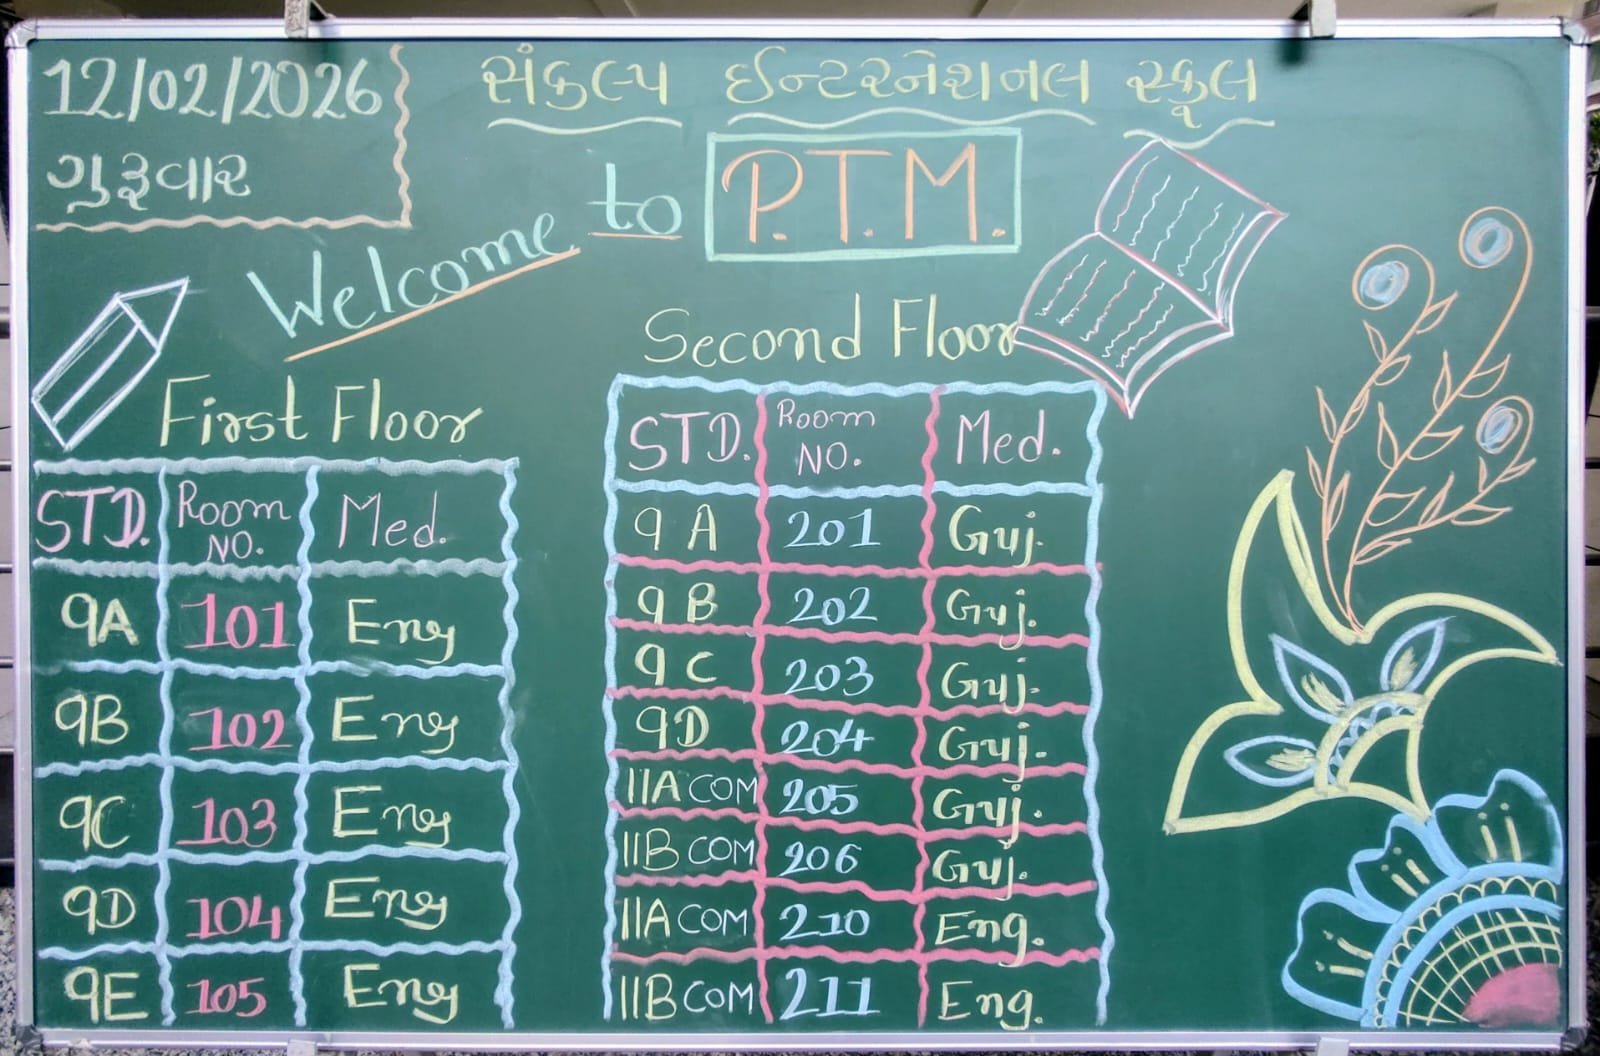 12/02/2026
ગુરૂવાર
સંકલ્પ ઈન્ટરનેશનલ સ્કૂલ
Welcome to P.T.M.
First Floor
STD. Room NO. Med.
9A 101 Eng
9B 102 Eng
9C 103 Eng
9D 104 Eng
9E 105 Eng
Second Floor
STD. Room NO. Med.
9 A 201 Guj.
9 B 202 Guj.
9 C 203 Guj.
9D 204 Guj.
11A COM 205 Guj.
11B COM 206 Guj.
11A COM 210 Eng.
11B COM 211 Eng.